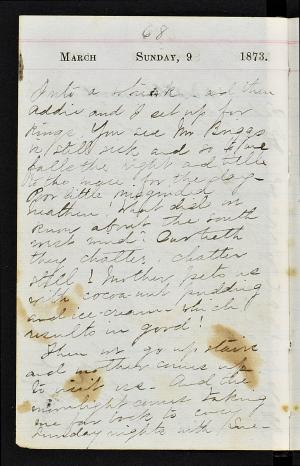 68
MARCH SUNDAY, 9 1873.
Into a and then
Addie and I set up for
Kings. You see Mr Briggs
is still sick and so
the right
to the for the day
Poor little misguided
heathen! What did we
know about the south
west wind! Our teeth
they chatter, chatter
still! Mother pets us
with cocoa-nut pudding
and ice-cream which
results in good!
Then we go up stairs
and mother comes up
to visit us. And the
moonlight comes taking
me far back to
Sunday nights with